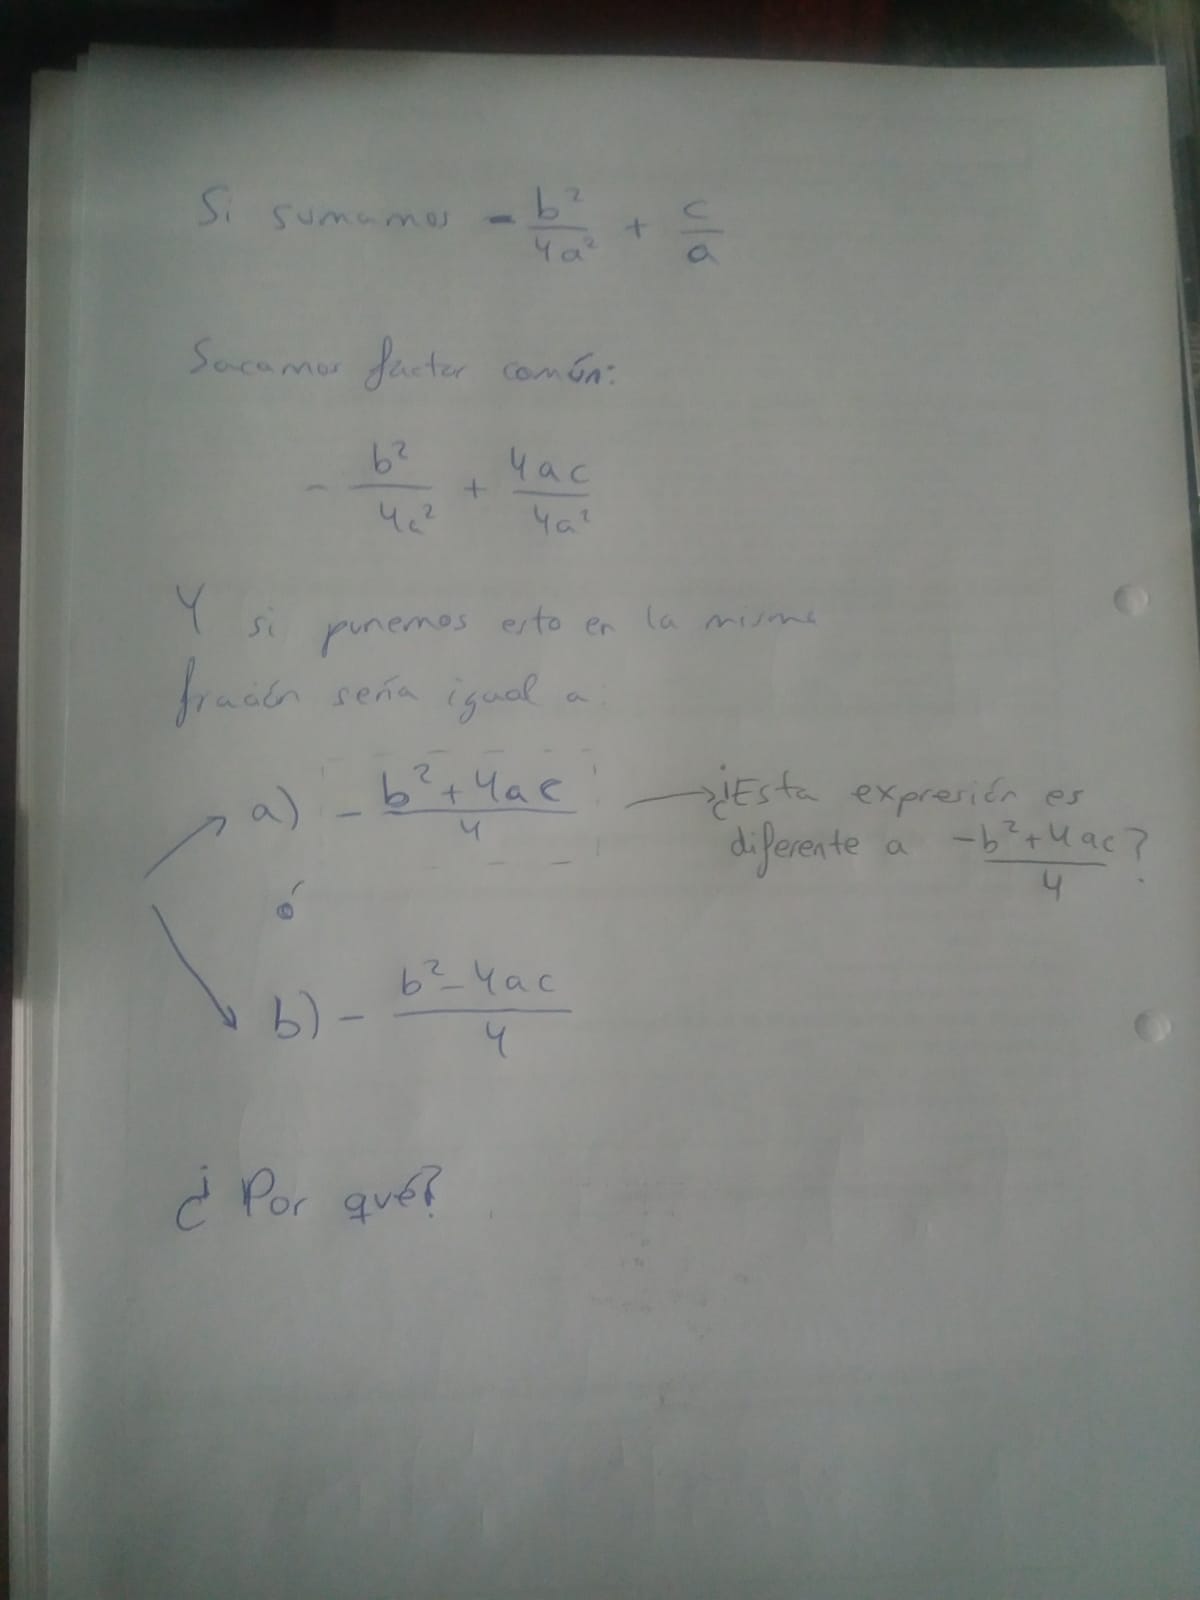 Si sumamos - b²/4a² + c/a
Sacamos factor común:
- b²/4a² + 4ac/4a²
Y si punemos esto en la misma
fracción sería igual a:
a) - b²+4ac/4 → ¿Esta expresión es
diferente a -b²+4ac/4?
ó
b) - b²-4ac/4
¿Por qué?